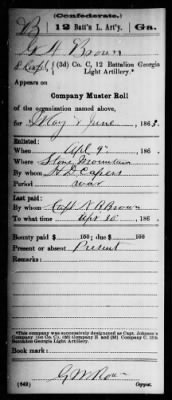 (Confederate.)
B 12 Batt'n L. Art'y. Ga.
G W Brown
Capt, (3d) Co. C, 12 Battalion Georgia
Light Artillery.*
Appears on
Company Muster Roll
of the organization named above,
for May & June, 1863.
Enlisted:
When Apl 9, 186
Where Stone Mountain
By whom H D Capers
Period war
Last paid:
By whom Capt N A Brown
To what time Apr 30, 186
Bounty paid $ 100; due $ 100
Present or absent Present
Remarks:
*This company was successively designated as Capt. Johnson's
Company (3d) Co. C
Battalion Georgia Light Artillery.
Book mark:
G W Row
(642) Copyist.